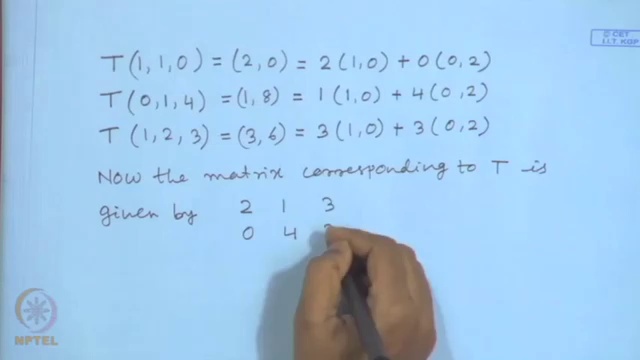 © CET
I.I.T. KGP
T(1,1,0) = (2,0) = 2(1,0) + 0(0,2)
T(0,1,4) = (1,8) = 1(1,0) + 4(0,2)
T(1,2,3) = (3,6) = 3(1,0) + 3(0,2)
Now the matrix corresponding to T is
given by 2 1 3
0 4
NPTEL